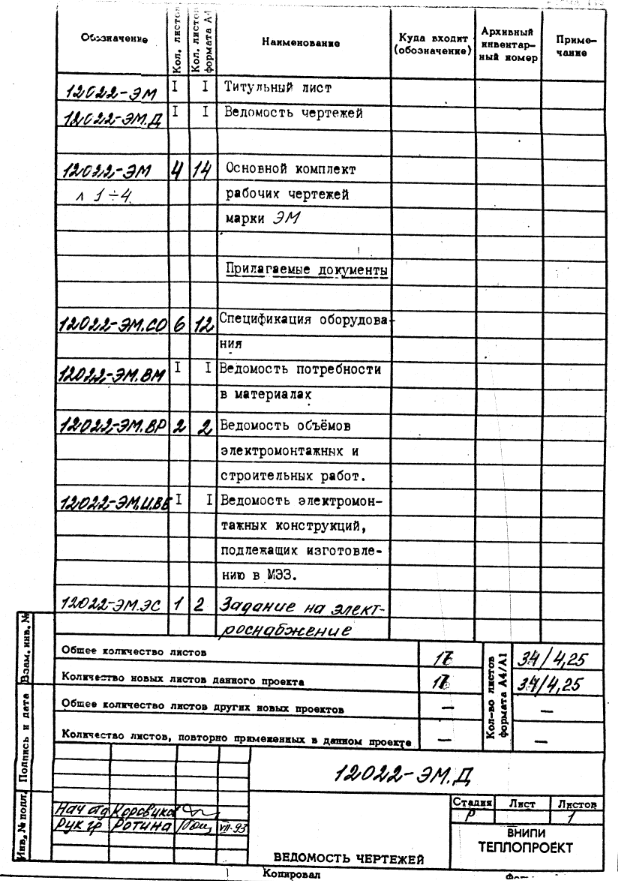 Обозначение | Кол. листов | Кол. листов формата А4 | Наименование | Куда входит (обозначение) | Архивный инвентарный номер | Примечание
12022-ЭМ I I Титульный лист
12022-ЭМ.Д I I Ведомость чертежей
12022-ЭМ 4 14 Основной комплект
л 1÷4 рабочих чертежей
марки ЭМ
Прилагаемые документы
12022-ЭМ.СО 6 12 Спецификация оборудова-
ния
12022-ЭМ.ВМ I I Ведомость потребности
в материалах
12022-ЭМ.ВР 2 2 Ведомость объёмов
электромонтажных и
строительных работ.
12022-ЭМ.И.ВБ I I Ведомость электромон-
тажных конструкций,
подлежащих изготовле-
нию в МЭЗ.
12022-ЭМ.ЭС 1 2 Задание на элект-
роснабжение
Общее количество листов 34/4,25
Количество новых листов данного проекта 34/4,25
Общее количество листов других новых проектов — —
Количество листов, повторно примененных в данном проекте — —
Кол-во листов формата А4/А1
Взам. инв. №
Подпись и дата
Инв. № подл.
12022-ЭМ.Д
Стадия Лист Листов
Р 1
Нач отд Коровика
Рук гр Ротина VII-93
ВЕДОМОСТЬ ЧЕРТЕЖЕЙ
ВНИПИ
ТЕПЛОПРОЕКТ
Копировал